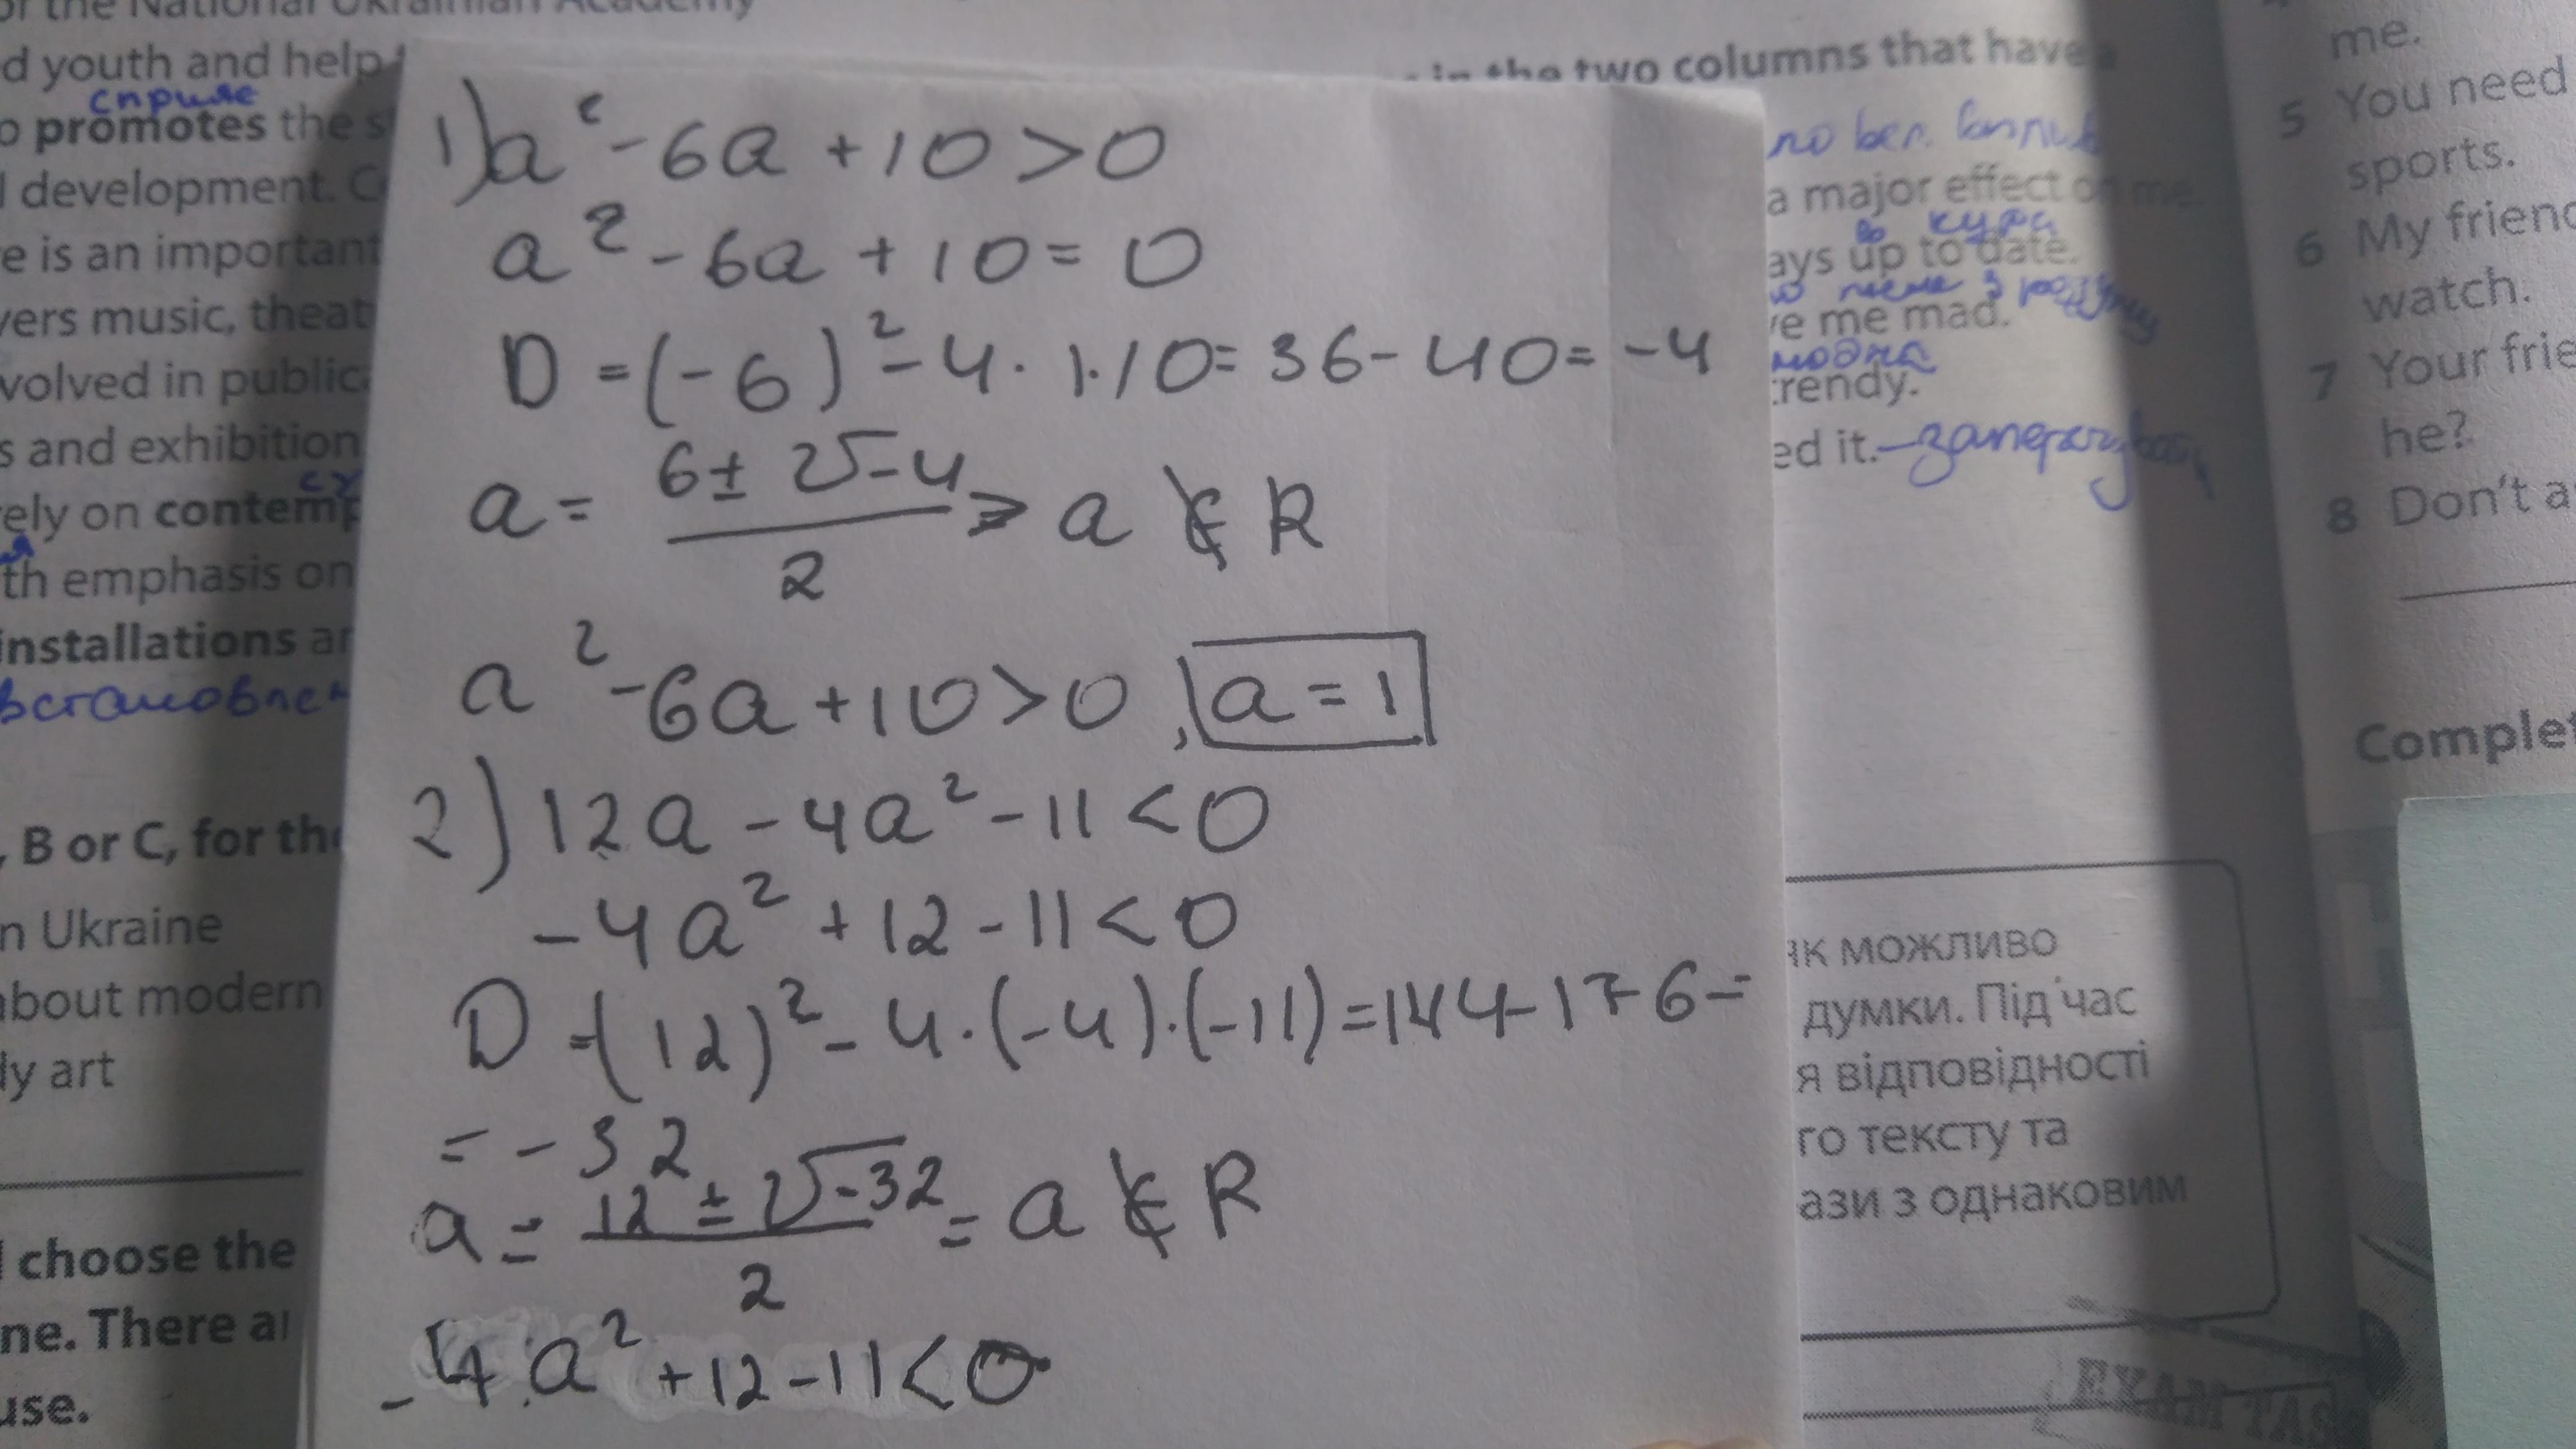 of the National Ukrainian Academy
d youth and help
сприяє
o promotes the s
l development. C
e is an important
vers music, theat
volved in public
s and exhibition
ely on contemp
th emphasis on
installations ar
встановлен
, B or C, for the
n Ukraine
about modern
ly art
l choose the
ne. There ar
use.
1) a² - 6a + 10 > 0
a² - 6a + 10 = 0
D = (-6)² - 4 · 1 · 10 = 36 - 40 = -4
a = 6 ± √-4 / 2 => a ∉ R
a² - 6a + 10 > 0, a = 1
2) 12a - 4a² - 11 < 0
-4a² + 12 - 11 < 0
D = (12)² - 4 · (-4) · (-11) = 144 - 176 =
= -32
a = 12 ± √-32 / 2 = a ∉ R
-4a² + 12 - 11 < 0
in the two columns that have a
a major effect on me.
в курсі
ays up to date.
ve me mad.
модна
trendy.
ed it.
як можливо
думки. Під час
я відповідності
го тексту та
ази з однаковим
EXAM TAS
me.
5 You need
sports.
6 My friend
watch.
7 Your frie
he?
8 Don't a
Complet